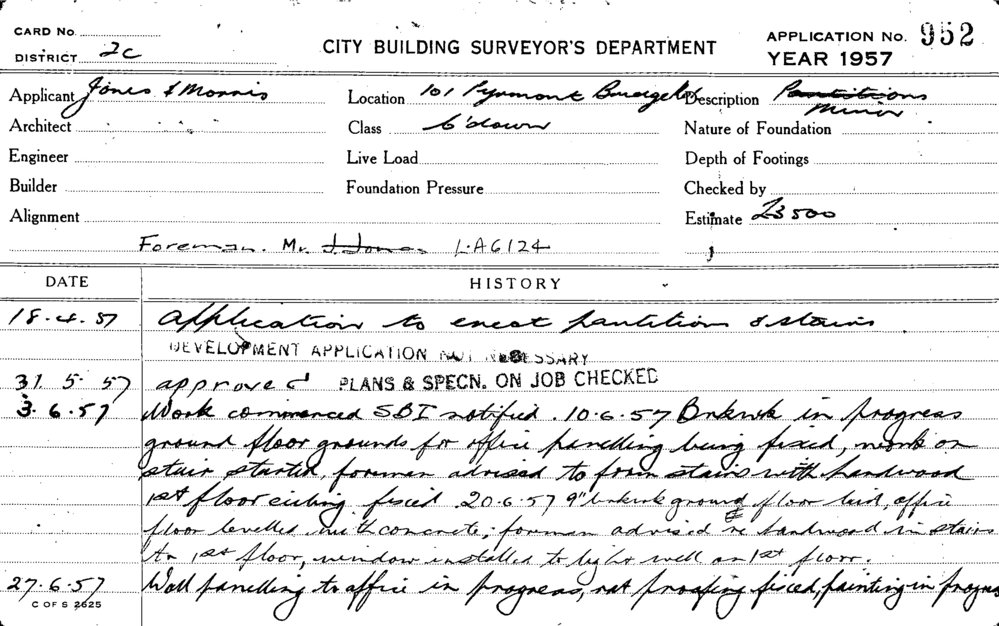 CARD No.
DISTRICT 2C
CITY BUILDING SURVEYOR'S DEPARTMENT
APPLICATION No. 952
YEAR 1957
Applicant Jones & Morris
Location 101 Pyrmont Bridge Rd
Description Partitions
Minor
Architect
Class C'down
Nature of Foundation
Engineer
Live Load
Depth of Footings
Builder
Foundation Pressure
Checked by
Alignment
Estimate £3500
Foreman. Mr. J. Jones LA6124
DATE
HISTORY
18.4.57 Application to erect partition & stairs
DEVELOPMENT APPLICATION NOT NECESSARY
31.5.57 approved PLANS & SPECN. ON JOB CHECKED
3.6.57 Work commenced SBI notified. 10.6.57 Brkwk in progress
ground floor grounds for office panelling being fixed, work on
stair started, foreman advised to form stairs with hardwood
1st floor ceiling fixed 20.6.57 9" brkwk ground floor laid, office
floor levelled with concrete; foreman advised re hardwood in stairs
to 1st floor, window installed to light well on 1st floor.
27.6.57 Wall panelling to office in progress, rat proofing fixed, painting in progress
C OF S 2625